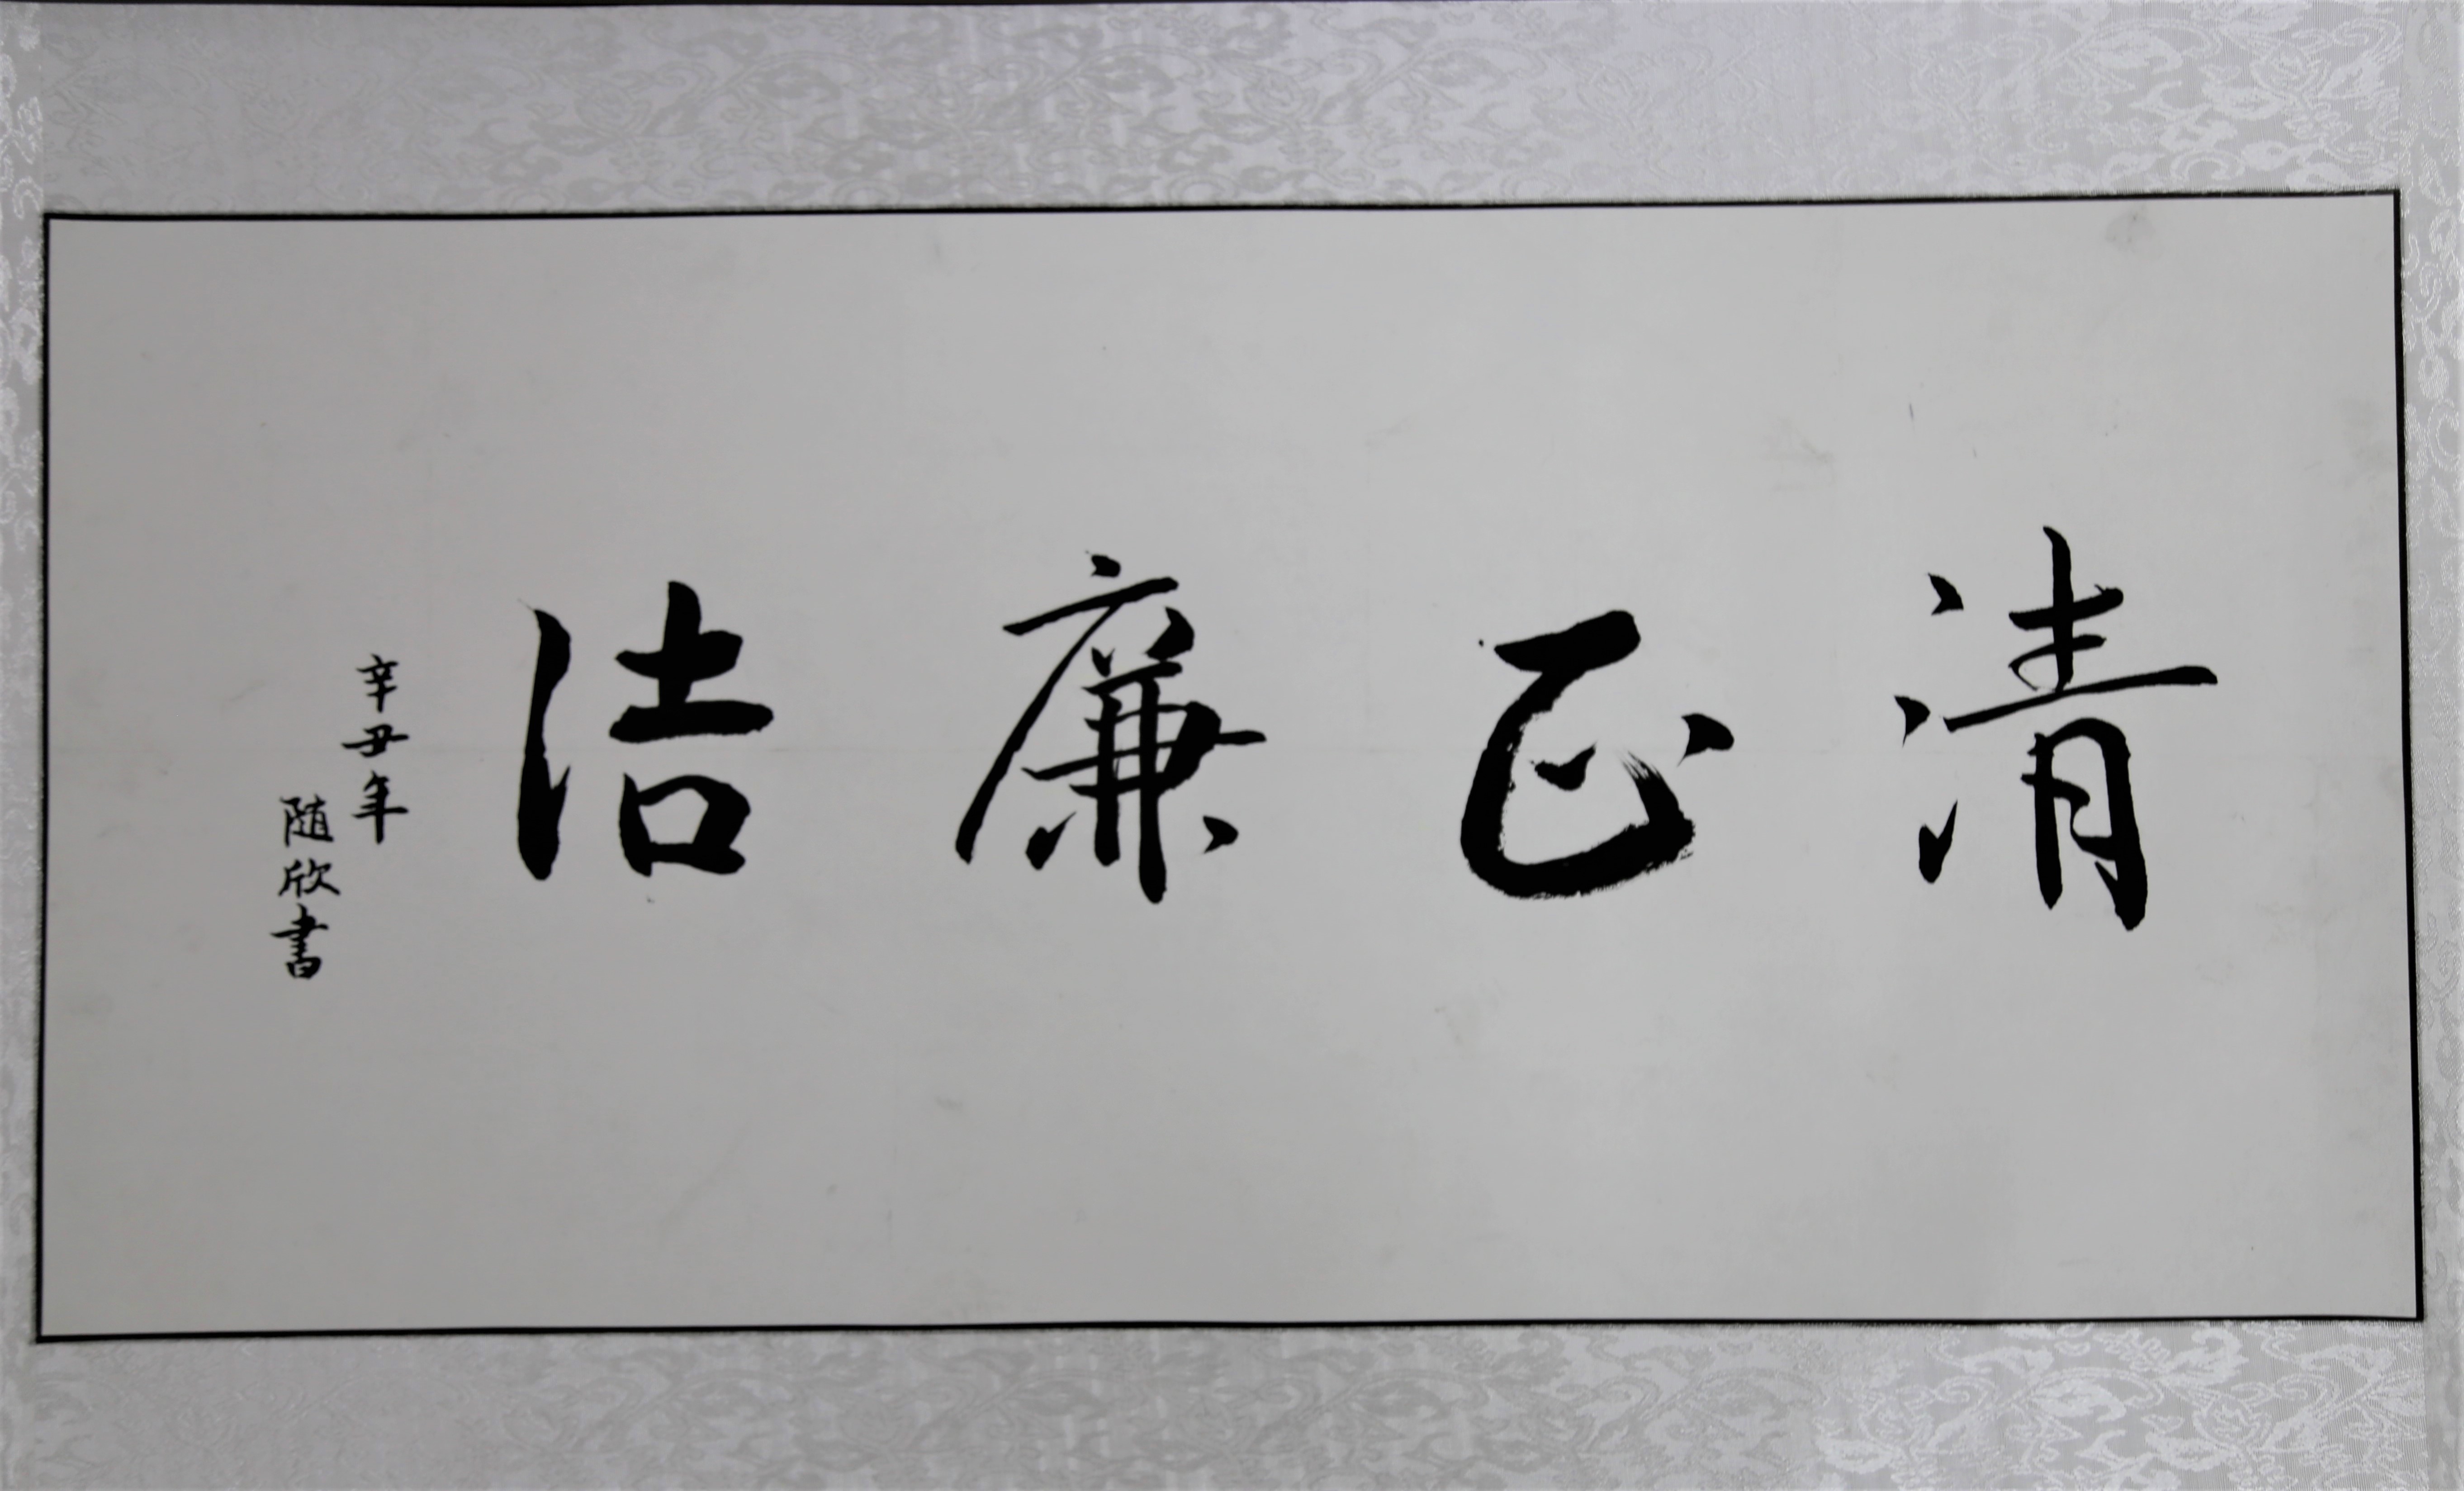 清正廉洁
辛丑年
随欣書